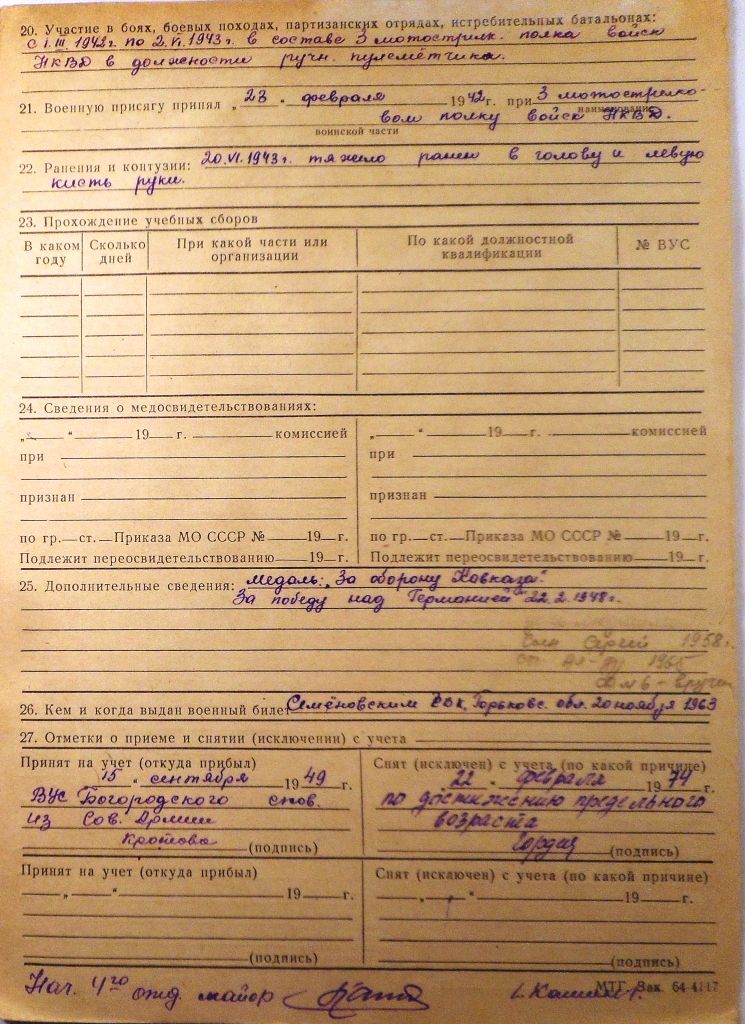 20. Участие в боях, боевых походах, партизанских отрядах, истребительных батальонах:
с 1.III.1942г. по 2.VI.1943г. в составе 3 мотострелк. полка войск
НКВД в должности ручн. пулемётчика.
21. Военную присягу принял „23“ февраля 1942г. при 3 мотострелко-
наименование
вом полку войск НКВД.
воинской части
22. Ранения и контузии: 20.VI.1943г. тяжело ранен в голову и левую
кисть руки.
23. Прохождение учебных сборов
В каком году Сколько дней При какой части или организации По какой должностной квалификации № ВУС
24. Сведения о медосвидетельствованиях:
„ “ 19 г. комиссией „ “ 19 г. комиссией
при при
признан признан
по гр.—ст.—Приказа МО СССР № —19—г. по гр.—ст.—Приказа МО СССР № —19—г.
Подлежит переосвидетельствованию —19—г. Подлежит переосвидетельствованию —19—г.
25. Дополнительные сведения: медаль: „За оборону Кавказа“.
За победу над Германией" 22.2.1948г.
Сергей 1958г.
1965
26. Кем и когда выдан военный билет Семёновским РВК, Горьковс. обл. 20 ноября 1963
27. Отметки о приеме и снятии (исключении) с учета
Принят на учет (откуда прибыл) Снят (исключен) с учета (по какой причине)
15 „ сентября 1949 г. 22 „ февраля 1974 г.
ВУС Богородского по достижению предельного
из Сов. Армии возраста
Кротова (подпись) (подпись)
Принят на учет (откуда прибыл) Снят (исключен) с учета (по какой причине)
„ “ 19 г. „ “ 19 г.
(подпись) (подпись)
МТГ. Зак. 64-4117
Нач. 4го отд. майор